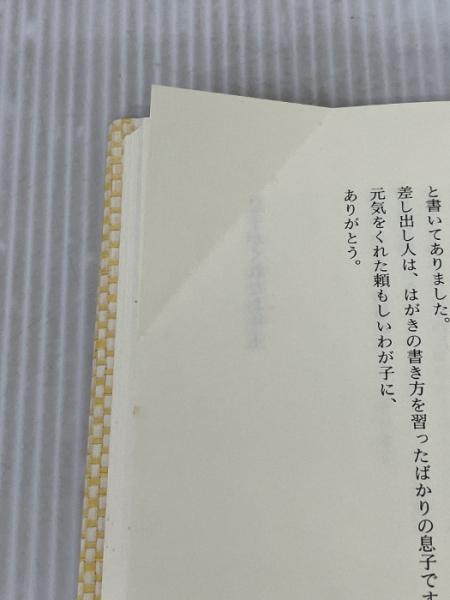 と書いてありました。
差し出し人は、はがきの書き方を習ったばかりの息子です
元気をくれた頼もしいわが子に、
ありがとう。